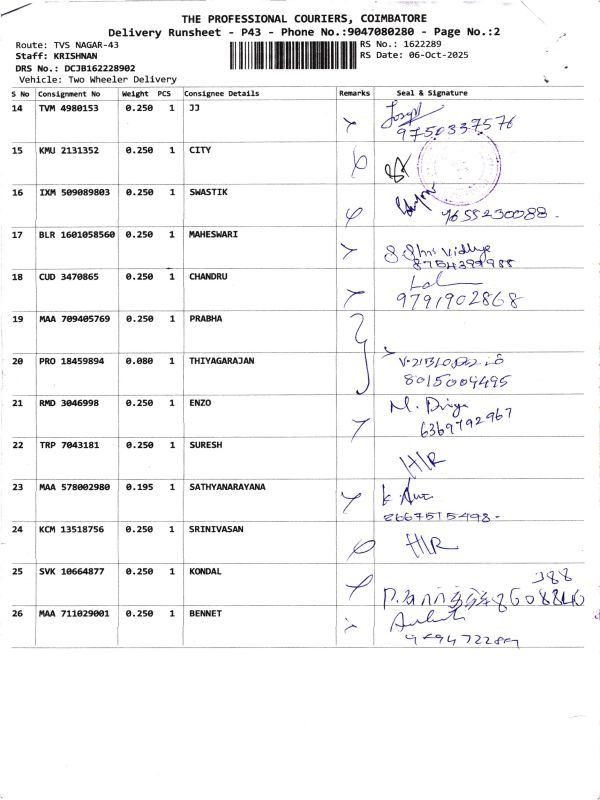 THE PROFESSIONAL COURIERS, COIMBATORE
Delivery Runsheet - P43 - Phone No.:9047080280 - Page No.:2
Route: TVS NAGAR-43
RS No.: 1622289
Staff: KRISHNAN
RS Date: 06-Oct-2025
DRS No.: DCJB162228902
Vehicle: Two Wheeler Delivery
S No Consignment No Weight PCS Consignee Details Remarks Seal & Signature
14 TVM 4980153 0.250 1 JJ Joseph
9750337576
15 KMU 2131352 0.250 1 CITY
16 IXM 509089803 0.250 1 SWASTIK
9655230088.
17 BLR 1601058560 0.250 1 MAHESWARI
18 CUD 3470865 0.250 1 CHANDRU
9791902868
19 MAA 709405769 0.250 1 PRABHA
20 PRO 18459894 0.080 1 THIYAGARAJAN
8015004495
21 RMD 3046998 0.250 1 ENZO
6369792967
22 TRP 7043181 0.250 1 SURESH
H/R
23 MAA 578002980 0.195 1 SATHYANARAYANA
24 KCM 13518756 0.250 1 SRINIVASAN H/R
25 SVK 10664877 0.250 1 KONDAL
388
26 MAA 711029001 0.250 1 BENNET